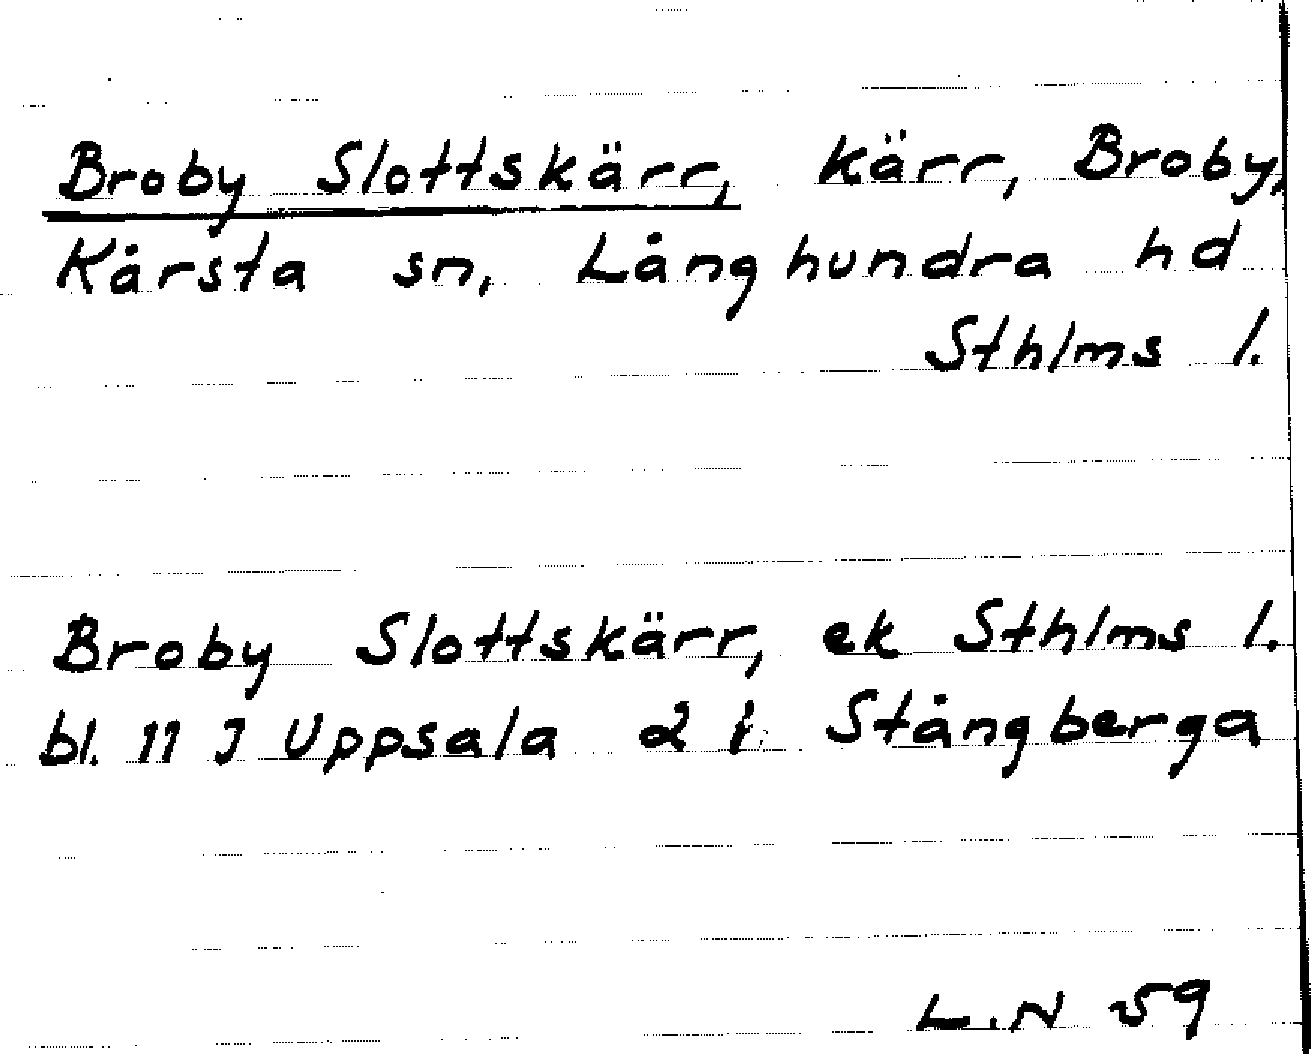 Broby Slottskärr, kärr, Broby,
Kårsta sn, Långhundra hd
Sthlms l.
Broby Slottskärr, ek Sthlms l.
bl. 11 J Uppsala 2 f. Stångberga
L.N 59